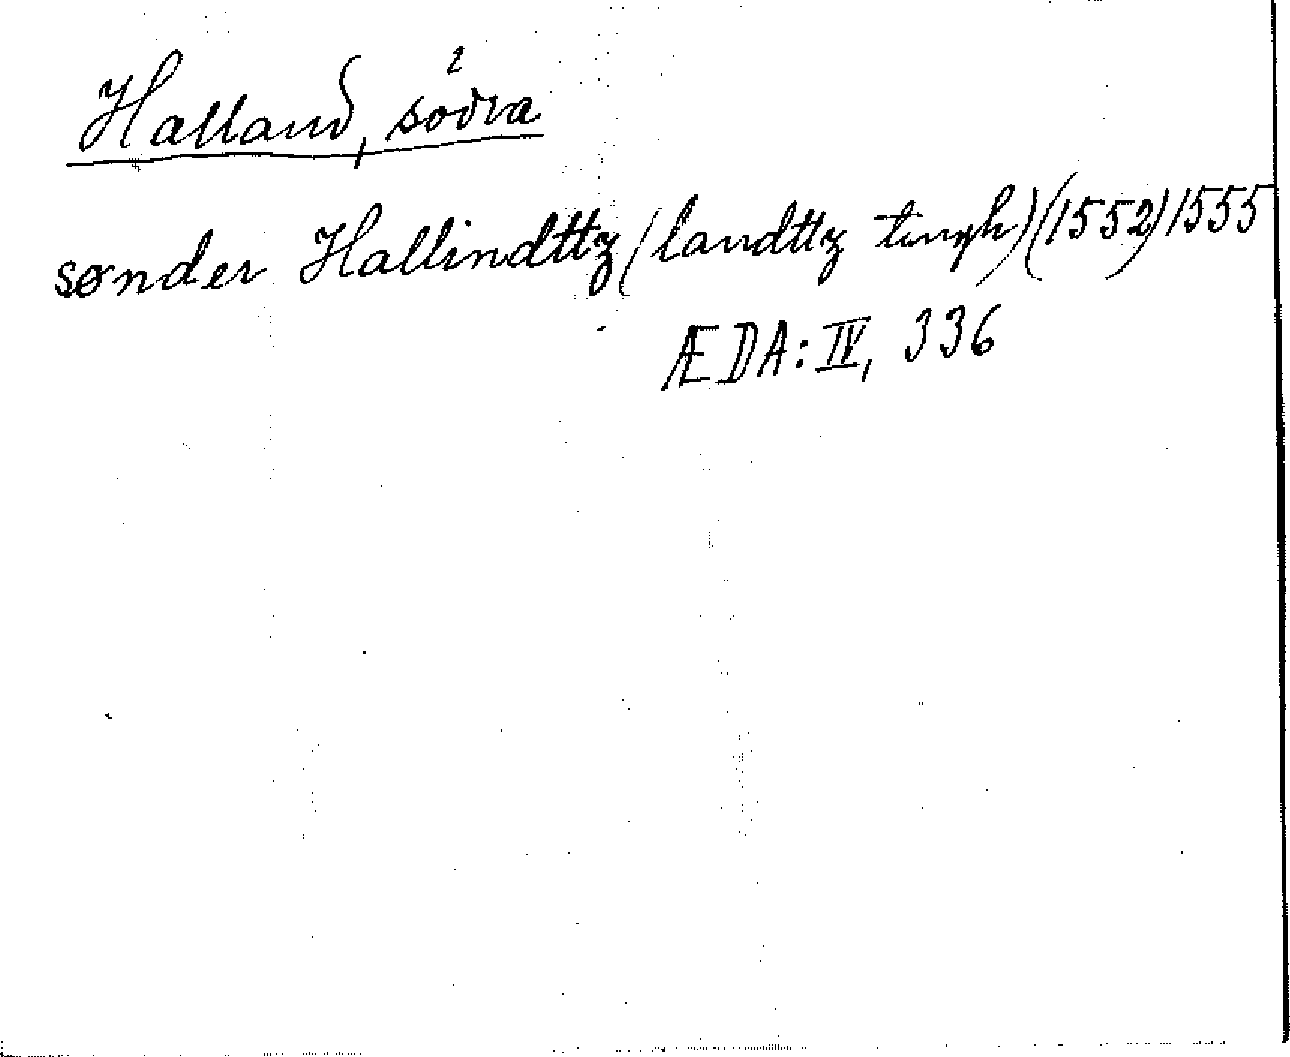 Halland, södra
sønder Hallindttz (landttz tingh) (1552) 1555
ÆDA: IV, 336